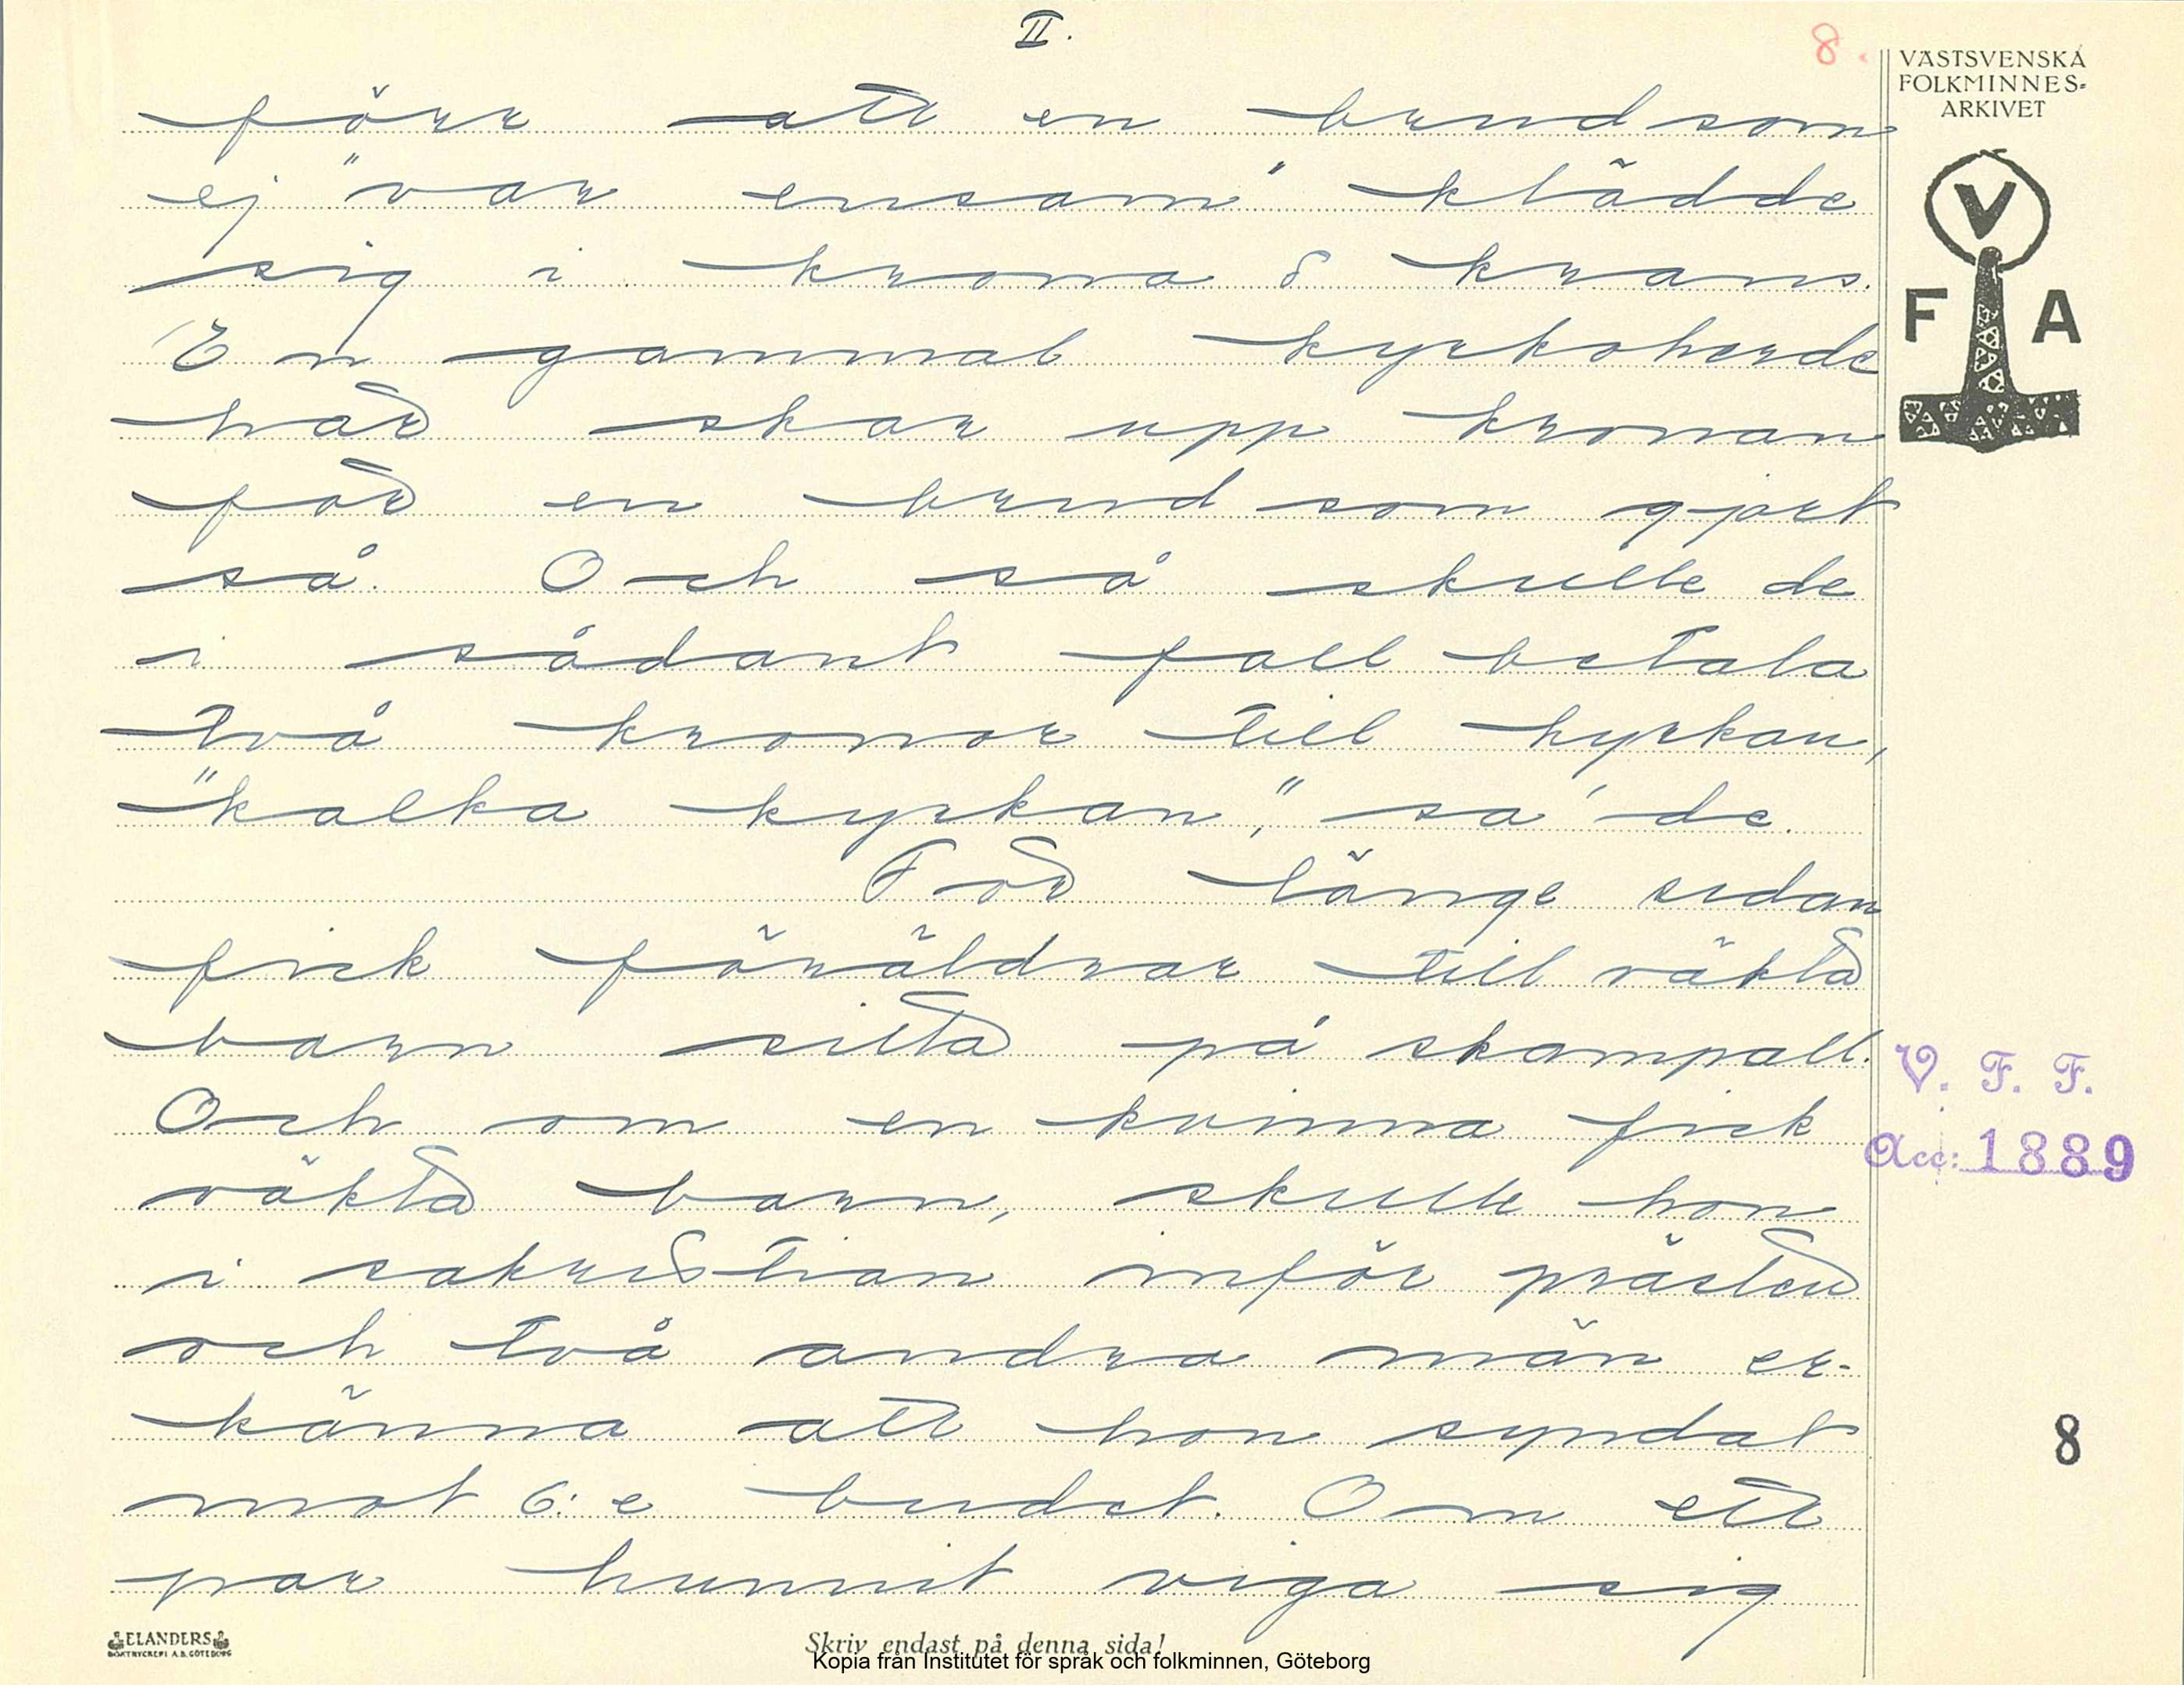 II.
8.
VÄSTSVENSKA
FOLKMINNES-
ARKIVET
V
F A
förr att en brud som
ej "var ensam" klädde
sig i krona & krans.
En gammal kyrkoherde
här skar upp kronan
för en brud som gjort
så. Och så skulle de
i sådant fall betala
två kronor till kyrkan,
"kalka kyrkan," sa' de.
För länge sedan
fick föräldrar till oäkta
barn sitta på skampall.
Och om en kvinna fick
oäkta barn, skulle hon
i sakristian inför prästen
och två andra män er-
känna att hon syndat
mot 6:e budet. Om ett
par hunnit viga sig
V. F. F.
Acc: 1889
8
ELANDERS
BOKTRYCKERI A.B. GÖTEBORG
Skriv endast på denna sida!
Kopia från Institutet för språk och folkminnen, Göteborg